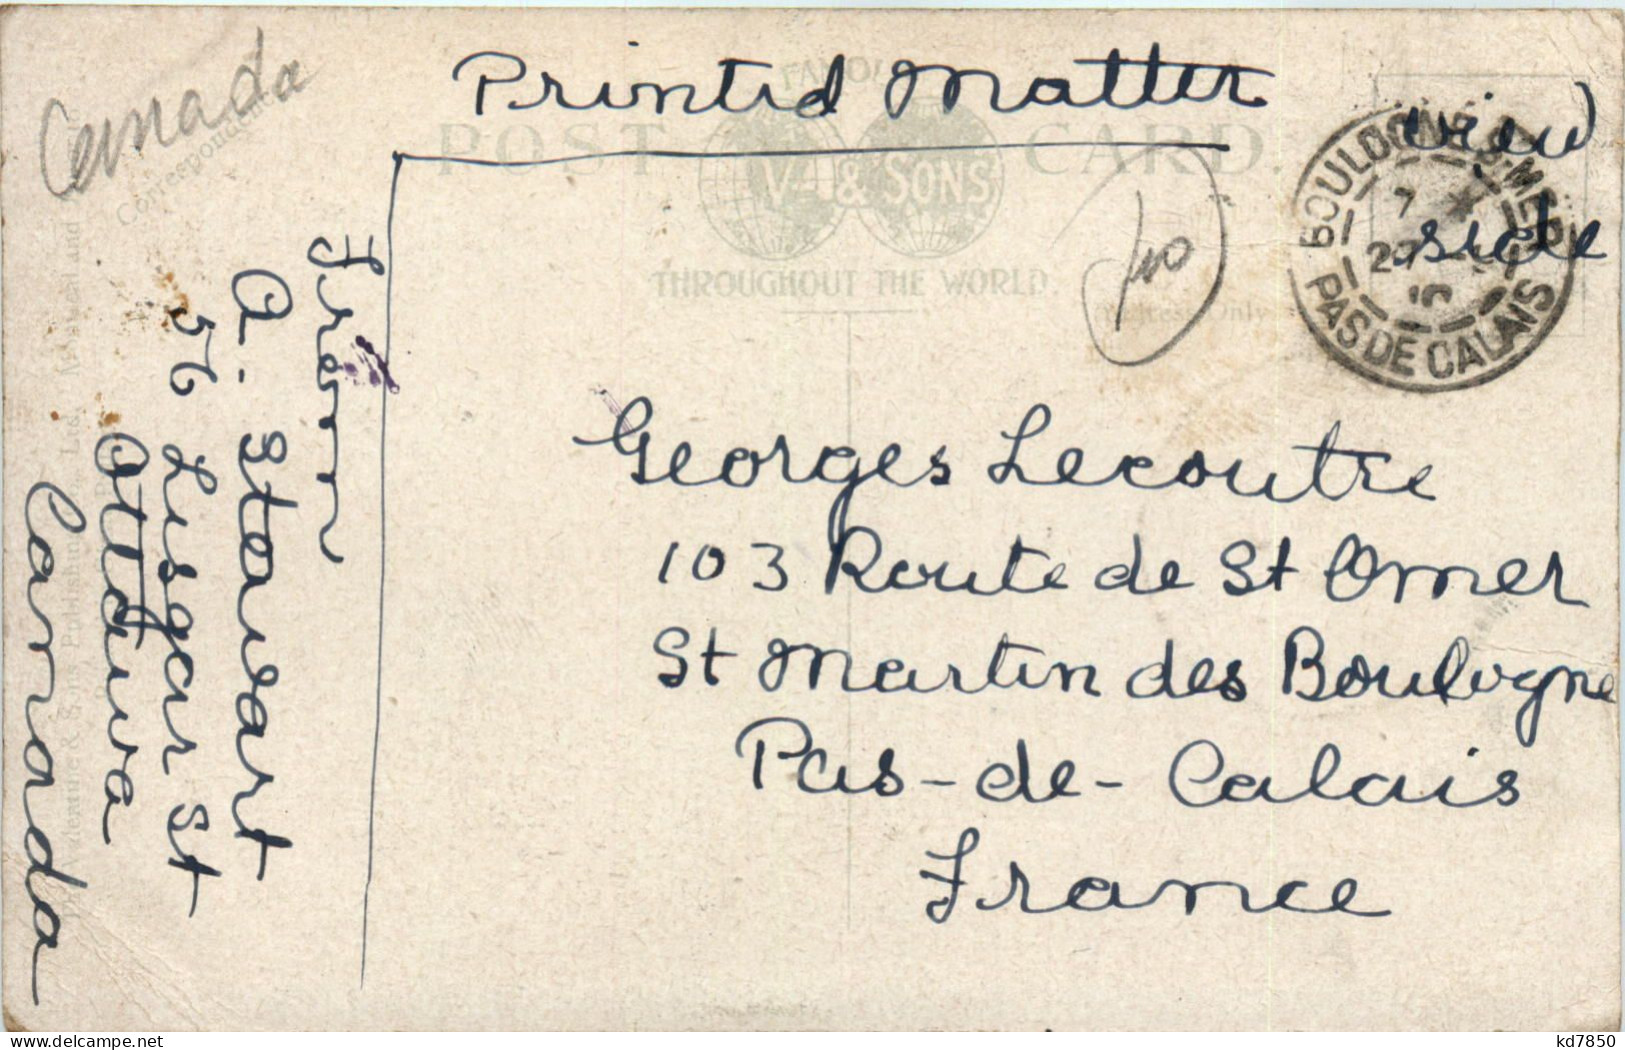 Canada
Printed Matter
view
side
FAMOUS
POST CARD.
V- & SONS
THROUGHOUT THE WORLD.
Correspondence
Address Only
40
BOULOGNE-S-MER
7 *
27
10
PAS DE CALAIS
From
A. Stewart
56 Lisgar St
Ottawa
Canada
Georges Lecoutre
103 Route de St Omer
St Martin des Boulogne
Pas-de-Calais
France
kd7850